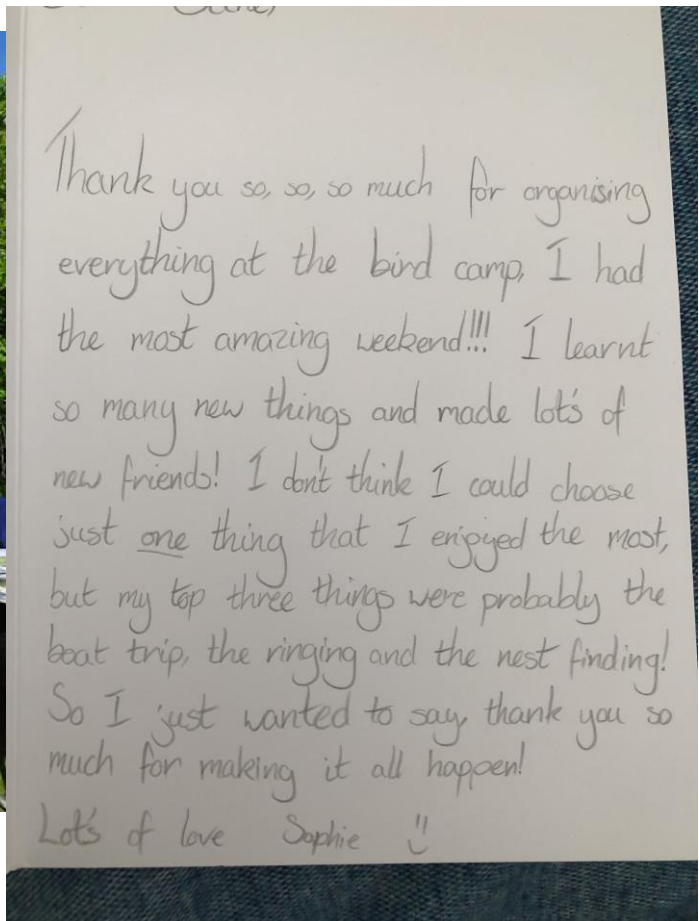 Thank you so, so, so much for organising
everything at the bird camp, I had
the most amazing weekend!!! I learnt
so many new things and made lot's of
new friends! I don't think I could choose
just one thing that I enjoyed the most,
but my top three things were probably the
boat trip, the ringing and the nest finding!
So I just wanted to say, thank you so
much for making it all happen!
Lot's of love Sophie